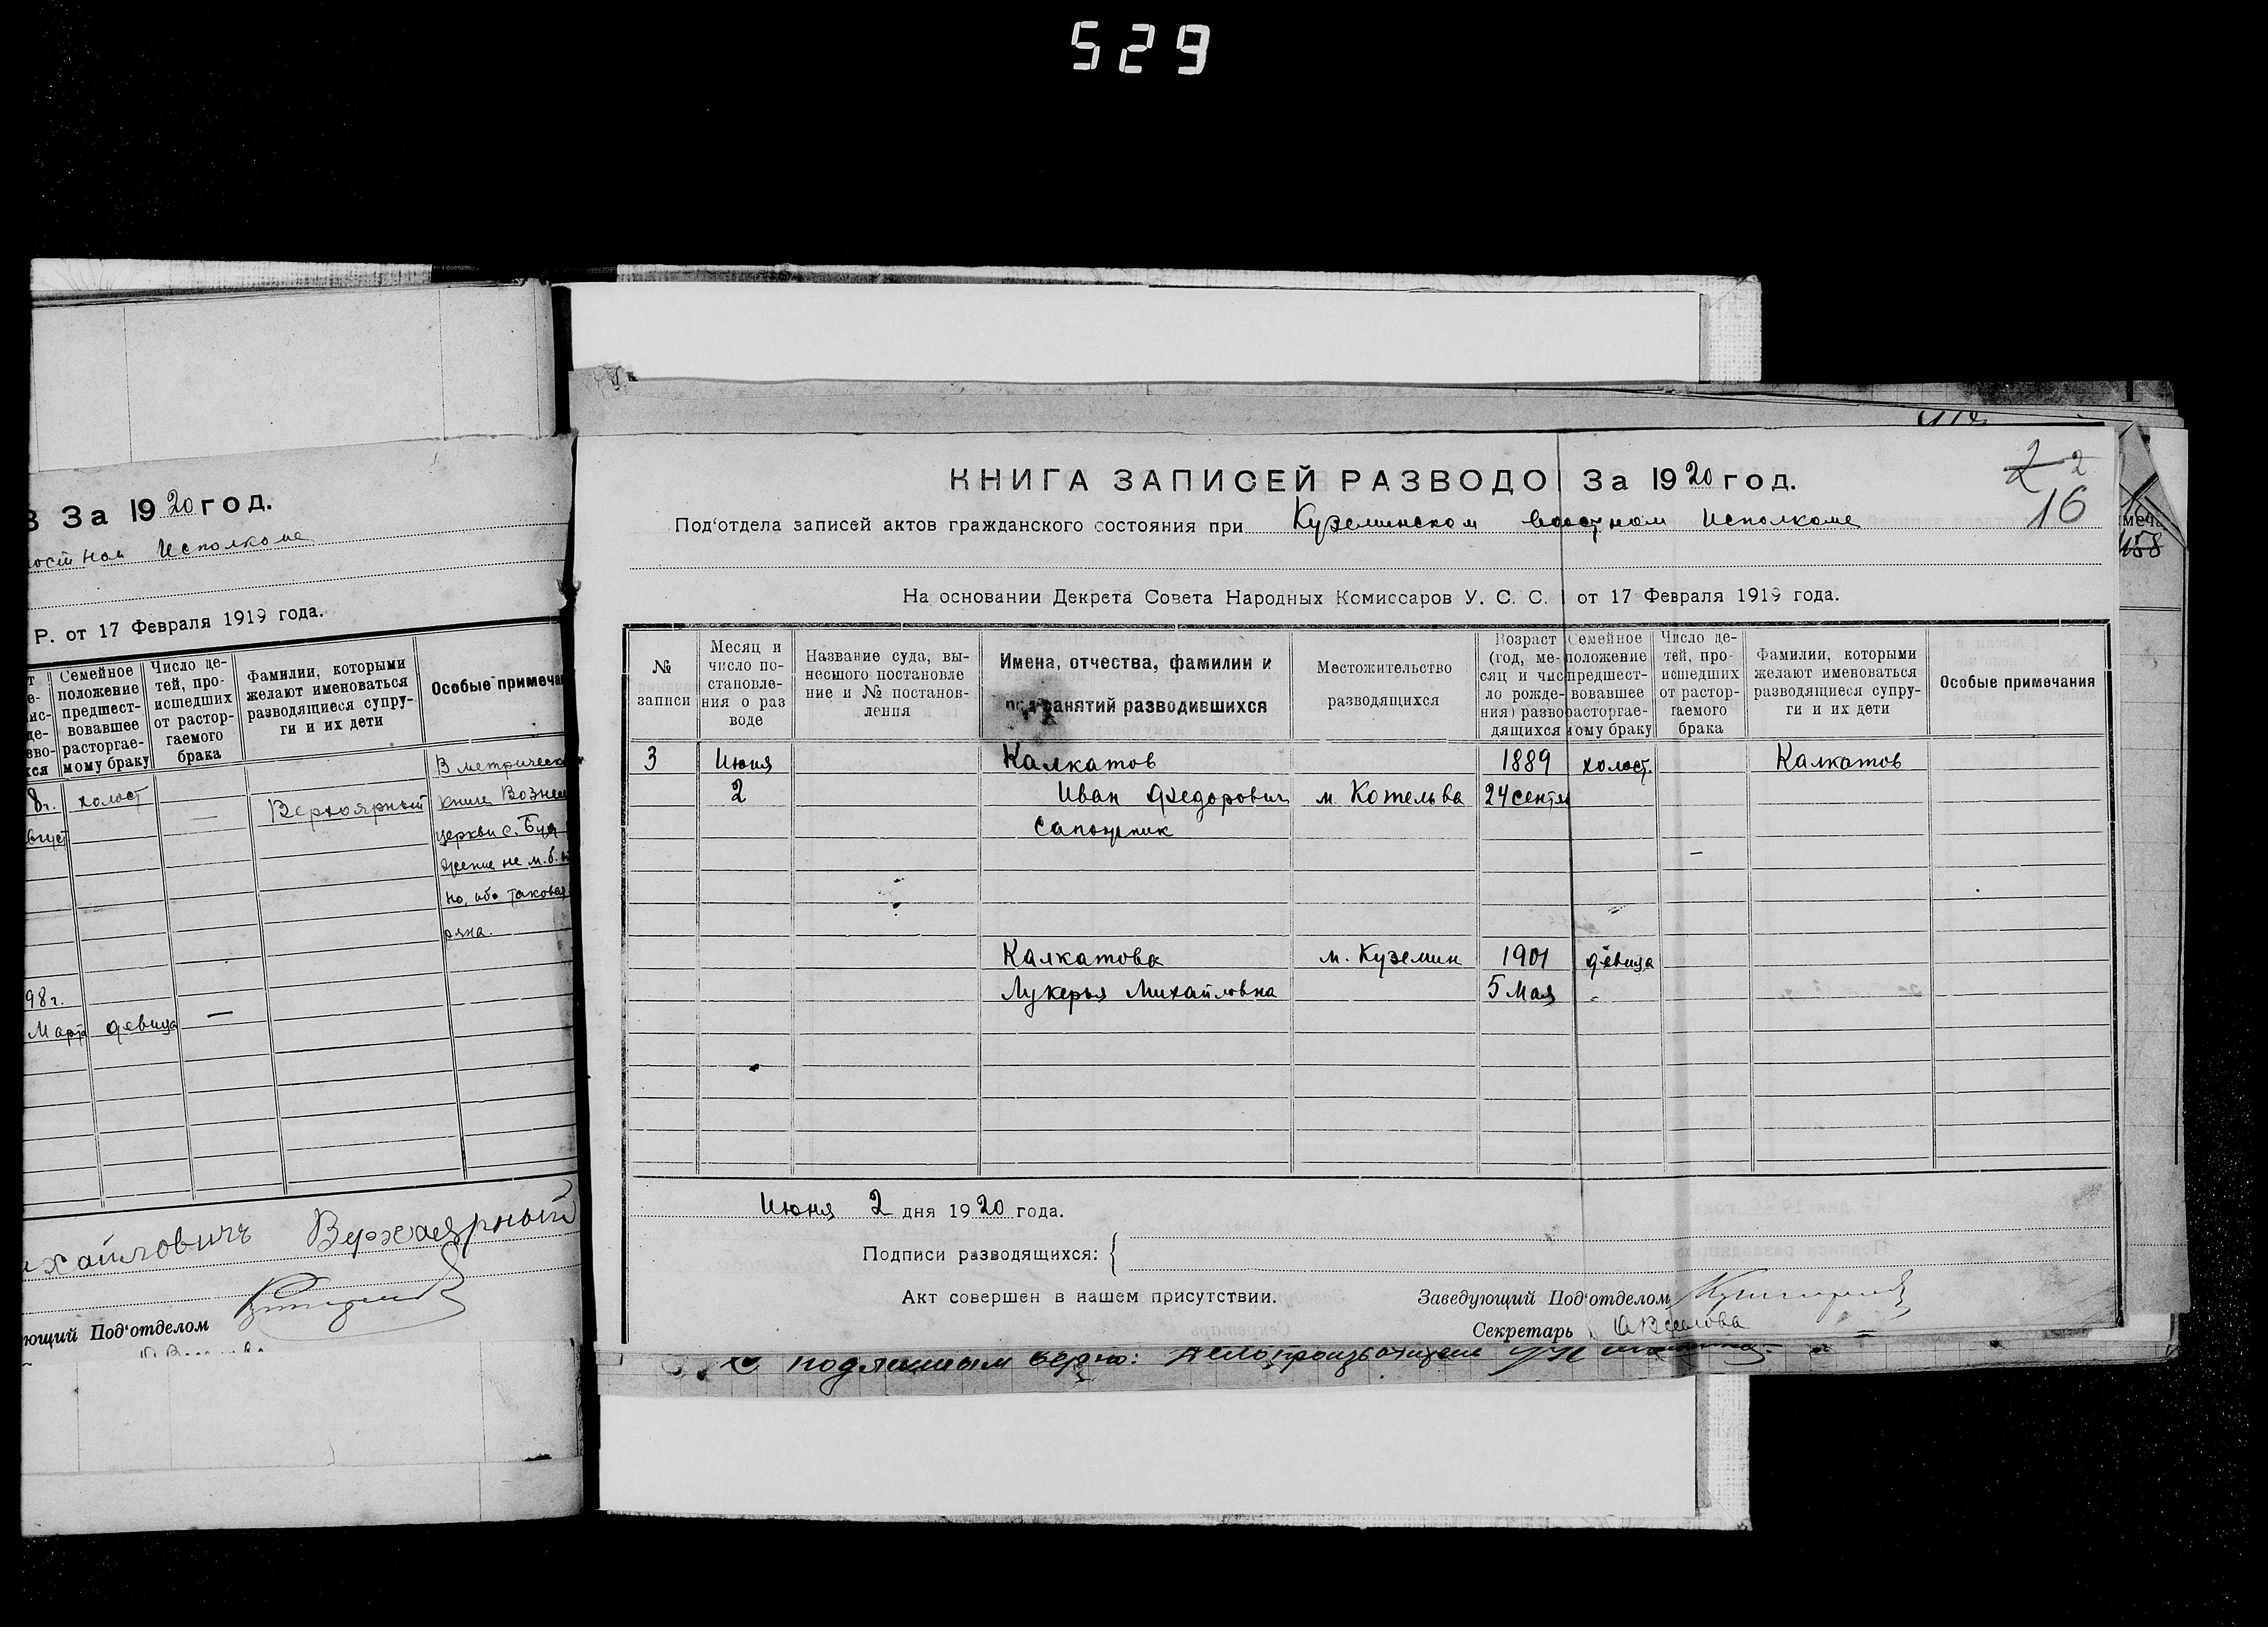 529
В За 1920 год.
Исполкоме
Р. от 17 Февраля 1919 года.
Семейное положение предшествовавшее расторгаемому браку
Число детей, происшедших от расторгаемого брака
Фамилии, которыми желают именоваться разводящиеся супруги и их дети
Особые примеча
8г. холост — Верхоярный
В метрическ
книге Вознес
церкви с. Буд
жение не м. б.
но, ибо таковая
ряна.
98г.
Марта девица —
хайловичъ Верхаярный
ющий Под'отделом
КНИГА ЗАПИСЕЙ РАЗВОДО За 1920 год.
2 2
16
Под'отдела записей актов гражданского состояния при Куземинском волостном Исполкоме
меча
158
На основании Декрета Совета Народных Комиссаров У. С. С. от 17 Февраля 1919 года.
№ записи
Месяц и число постановления о разводе
Название суда, вынесшого постановление и № постановления
Имена, отчества, фамилии и занятий разводившихся
Местожительство разводящихся
Возраст (год, месяц и число рождения) разводящихся
Семейное положение предшествовавшее расторгаемому браку
Число детей, происшедших от расторгаемого брака
Фамилии, которыми желают именоваться разводящиеся супруги и их дети
Особые примечания
3 Июня Калкатов 1889 холост. Калкатов
2 Иван Федорович м. Котельва 24 сентя
Сапожник
—
Калкатова м. Куземин 1901 девица
Лукерья Михайловна 5 Мая
Июня 2 дня 1920 года.
Подписи разводящихся:
Акт совершен в нашем присутствии.
Заведующий Под'отделом
Секретарь
С подлинным верно: Делопроизводитель